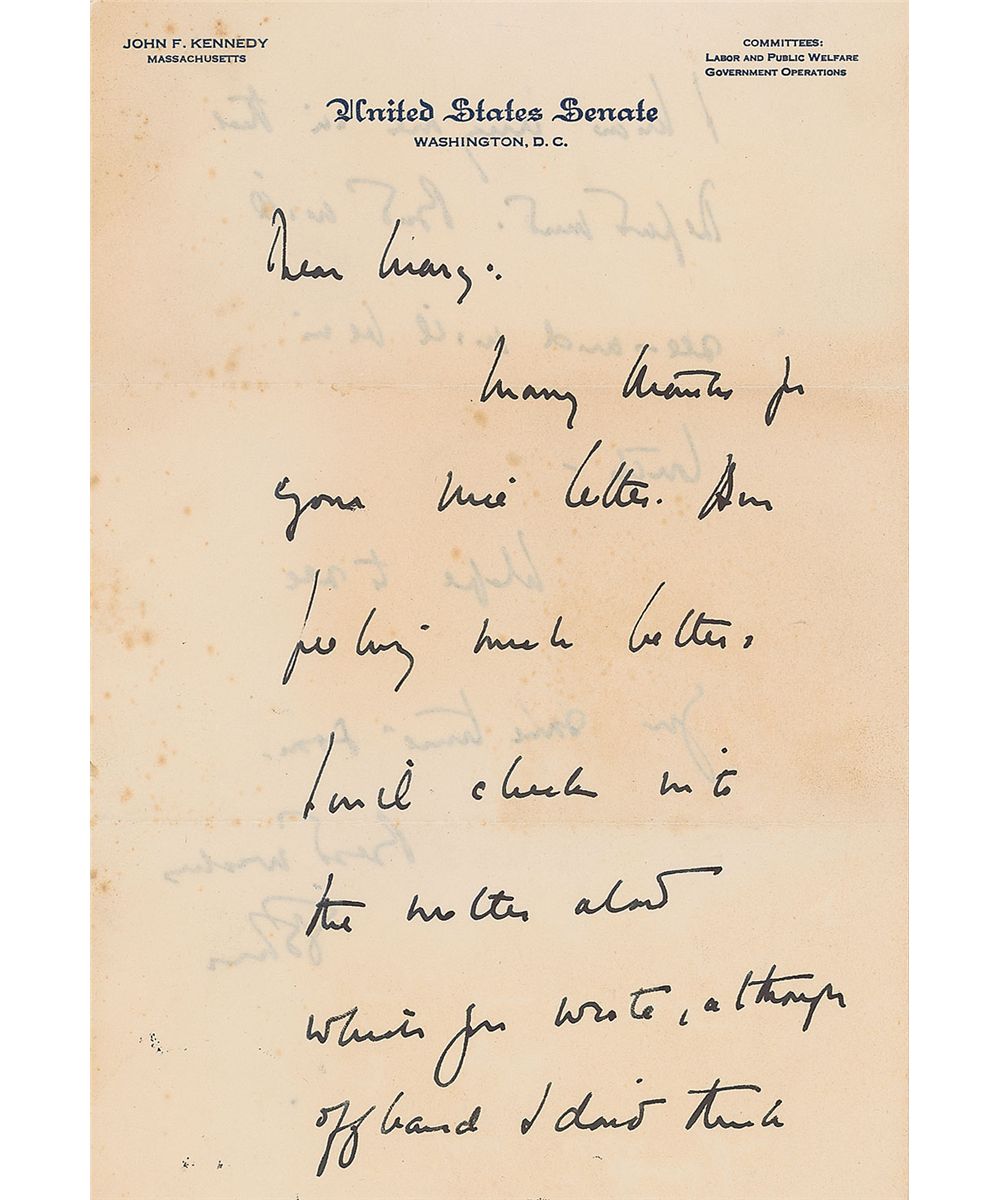 JOHN F. KENNEDY
MASSACHUSETTS
COMMITTEES:
LABOR AND PUBLIC WELFARE
GOVERNMENT OPERATIONS
United States Senate
WASHINGTON, D. C.
Dear Mary:
Many thanks for
your nice letter. Am
feeling much better.
I will check into
the matter about
which you wrote, although
offhand I don't think